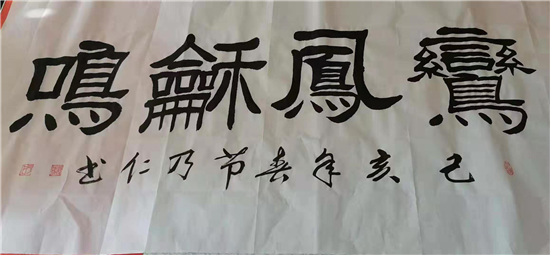 鸞鳳龢鳴
己亥年春节乃仁书